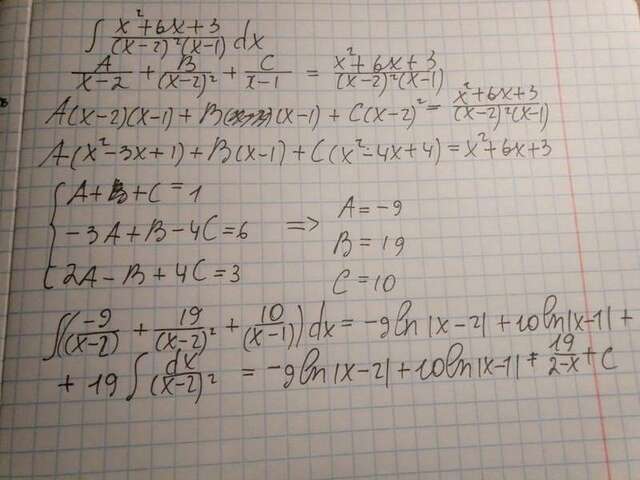 ∫ (x²+6x+3)/((x-2)²(x-1)) dx
A/(x-2) + B/(x-2)² + C/(x-1) = (x²+6x+3)/((x-2)²(x-1))
A(x-2)(x-1) + B(x-1) + C(x-2)² = (x²+6x+3)/((x-2)²(x-1))
A(x²-3x+1) + B(x-1) + C(x²-4x+4) = x²+6x+3
{ A+B+C=1
-3A+B-4C=6 => A=-9
2A-B+4C=3 B=19
C=10
∫(-9/(x-2) + 19/(x-2)² + 10/(x-1))dx = -9ln|x-2| + 10ln|x-1| +
+ 19 ∫ dx/(x-2)² = -9ln|x-2| + 10ln|x-1| + 19/(2-x) + C